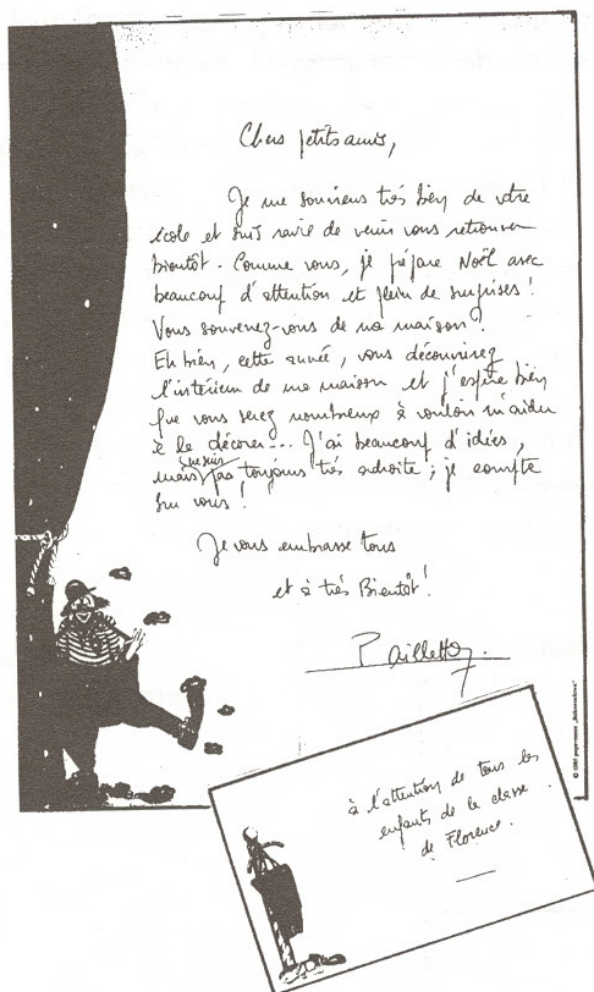 Chers petits amis,
Je me souviens très bien de votre
école et suis ravie de venir vous retrouver
bientôt. Comme vous, je prépare Noël avec
beaucoup d'attention et plein de surprises !
Vous souvenez-vous de ma maison ?
Eh bien, cette année, vous découvrirez
l'intérieur de ma maison et j'espère bien
que vous serez nombreux à vouloir m'aider
à la décorer... J'ai beaucoup d'idées,
mais ne suis pas toujours très adroite ; je compte
sur vous !
Je vous embrasse tous
et à très Bientôt !
Paillette
à l'attention de tous les
enfants de la classe
de Florence.